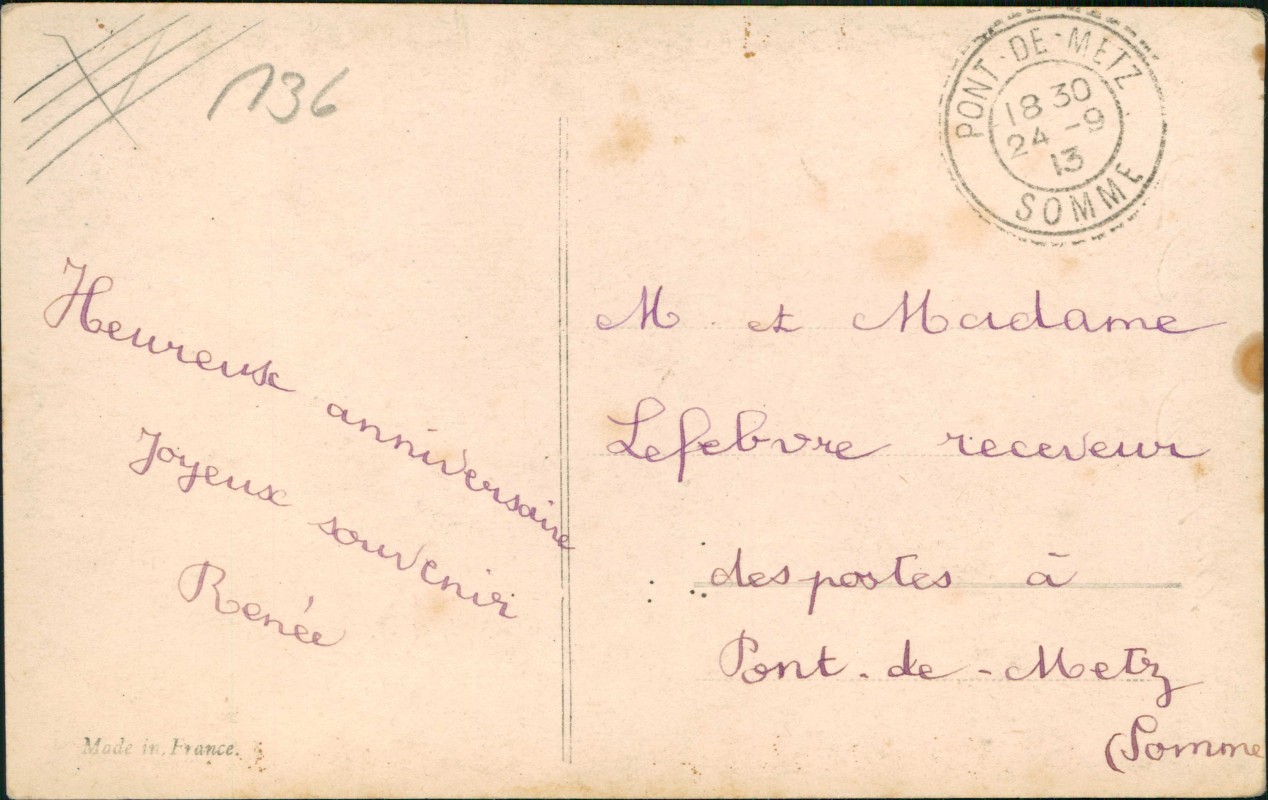 136
PONT-DE-METZ
18 30
24 -9
13
SOMME
Heureux anniversaire
Joyeux souvenir
Renée
M et Madame
Lefebvre receveur
des postes à
Pont-de-Metz
(Somme
Made in France.